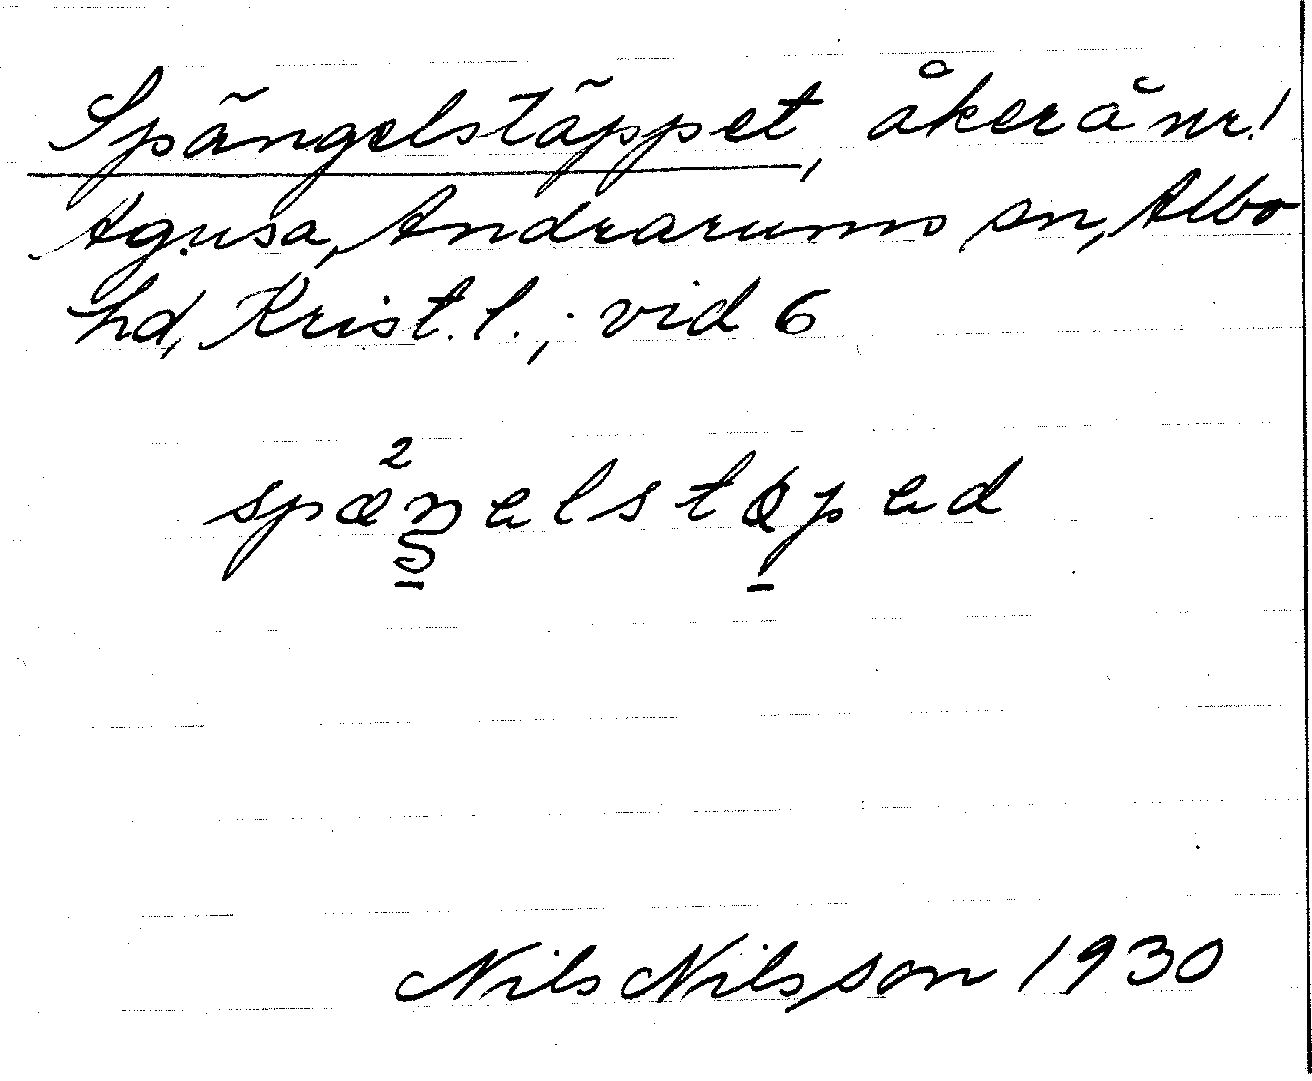 Spängelstäppet, åker å nr 1
Agusa, Andrarums sn, Albo
hd, Krist. l., vid 6
spæŋelstapəd
Nils Nilsson 1930